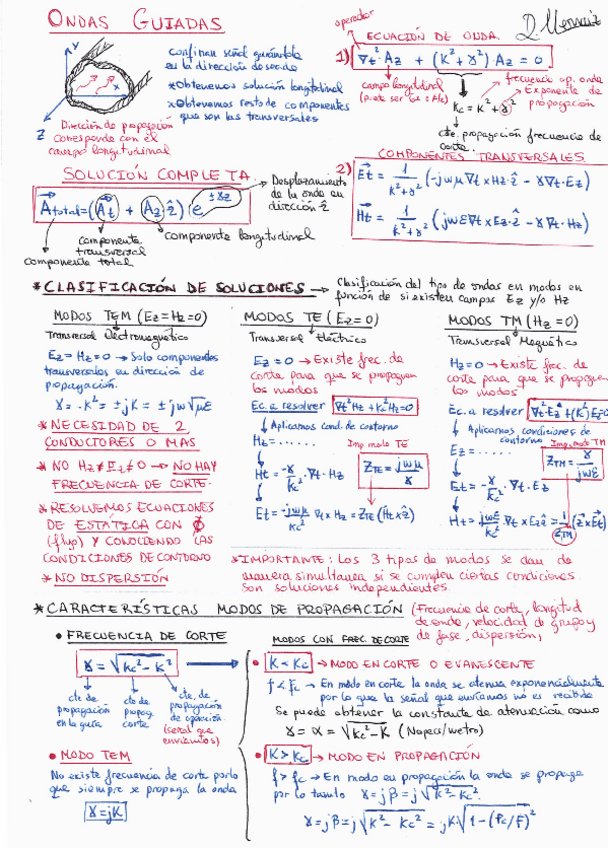 ONDAS GUIADAS
confinan señal guiándola
en la dirección deseada
*Obtenemos solución longitudinal
*Obtenemos resto de componentes
que son las transversales
Y
X
Z
Dirección de propagación
corresponde con el
campo longitudinal
operador
ECUACIÓN DE ONDA
1) ∇t² Az + (K² + γ²) Az = 0
campo longitudinal
frecuencia op. onda
Exponente de
propagación
Kc = K² + γ²
cte. propagación frecuencia de
corte.
SOLUCIÓN COMPLETA
A total = (At + Az ẑ) e ±γz
Desplazamiento
de la onda en
dirección ẑ
componente
transversal
componente longitudinal
componente total
COMPONENTES TRANSVERSALES
2) Et = 1/(K²+γ²) (-jωμ∇t x Hz·ẑ - γ∇t·Ez)
Ht = 1/(K²+γ²) (jωε∇t x Ez·ẑ - γ∇t·Hz)
* CLASIFICACIÓN DE SOLUCIONES → Clasificación del tipo de ondas en modos en
función de si existen campos Ez y/o Hz
MODOS TEM (Ez=Hz=0)
Transversal Electromagnético
Ez = Hz = 0 → Solo componentes
transversales en dirección de
propagación.
γ = -K² = ± jK = ± jω√με
* NECESIDAD DE 2
CONDUCTORES O MAS
* NO Hz ≠ Ez ≠ 0 → NO HAY
FRECUENCIA DE CORTE.
* RESOLVEMOS ECUACIONES
DE ESTATICA CON ϕ
(flujo) Y CONOCIENDO LAS
CONDICIONES DE CONTORNO
* NO DISPERSIÓN
MODOS TE (Ez=0)
Transversal Eléctrico
Ez = 0 → Existe frec. de
corte para que se propaguen
los modos
Ec. a resolver ∇t²Hz + Kc²Hz = 0
↓ Aplicamos cond. de contorno
Hz = ......
Imp. modo TE
ZTE = jωμ/γ
Ht = -γ/Kc² · ∇t · Hz
Et = -jωμ/Kc² ∇t x Hz = ZTE (Ht x ẑ)
MODOS TM (Hz = 0)
Transversal Magnético
Hz = 0 → Existe frec. de
corte para que se propaguen
los modos
Ec. a resolver
↓ Aplicamos condiciones de
contorno Imp. modo TM
Ez = .....
ZTM = γ/jωε
Et = -γ/Kc² · ∇t · Ez
Ht = jωε/Kc² ∇t x Ez ẑ = 1/ZTM (ẑ x Et)
*IMPORTANTE: Los 3 tipos de modos se dan de
manera simultanea si se cumplen ciertas condiciones
son soluciones independientes.
* CARACTERÍSTICAS MODOS DE PROPAGACIÓN (Frecuencia de corte, longitud
de onda, velocidad de grupo y
de fase, dispersión)
• FRECUENCIA DE CORTE
γ = √Kc² - K²
cte de
propagación
en la guía
cte de
propag.
corte
cte. de
propagación
de operación.
(señal que
enviamos)
• MODO TEM
No existe frecuencia de corte por lo
que siempre se propaga la onda
γ = jK
MODOS CON FREC. DE CORTE
• K < Kc → MODO EN CORTE O EVANESCENTE
f < fc → En modo en corte la onda se atenua exponencialmente
por lo que la señal que enviamos no es recibida
Se puede obtener la constante de atenuación como
γ = α = √Kc² - K (Nepers/metro)
• K > Kc → MODO EN PROPAGACIÓN
f > fc → En modo en propagación la onda se propaga
por lo tanto γ = jβ = j√K² - Kc².
γ = jβ = j√K² - Kc² = jK√1 - (fc/f)²